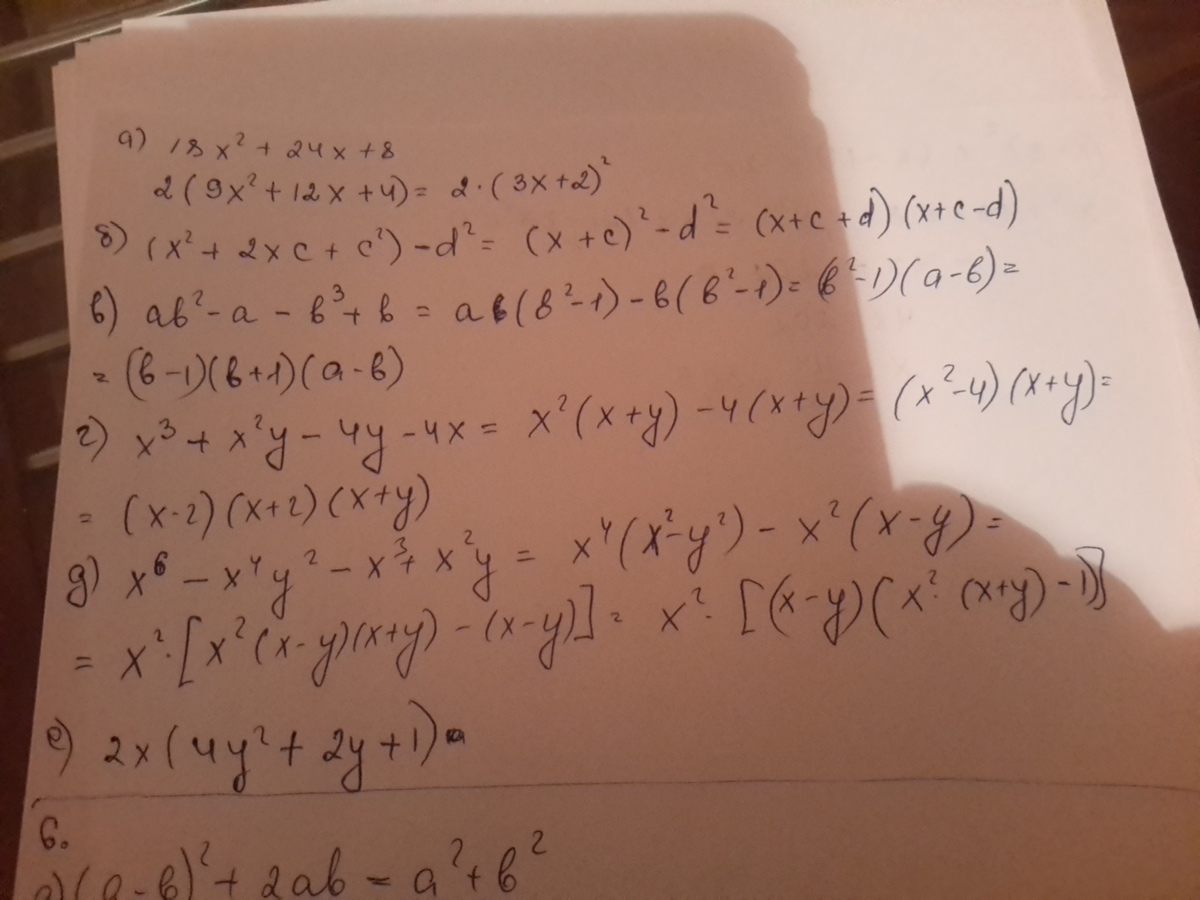 а) 18x² + 24x + 8
2(9x² + 12x + 4) = 2·(3x+2)²
б) (x² + 2xc + c²) - d² = (x + c)² - d² = (x+c+d)(x+c-d)
в) ab² - a - b³ + b = a(b² - 1) - b(b² - 1) = (b² - 1)(a - b) =
= (b - 1)(b + 1)(a - b)
г) x³ + x²y - 4y - 4x = x²(x+y) - 4(x+y) = (x² - 4)(x+y) =
= (x-2)(x+2)(x+y)
д) x⁶ - x⁴y² - x³ + x²y = x⁴(x² - y²) - x²(x - y) =
= x²·[x²(x-y)(x+y) - (x-y)] = x²·[(x-y)(x²·(x+y) - 1)]
е) 2x(4y² + 2y + 1)
6.
а) (a - b)² + 2ab = a² + b²